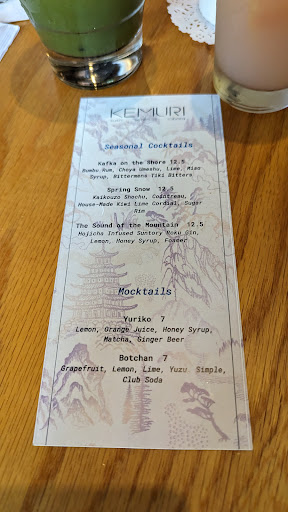 KEMURI
Seasonal Cocktails
Kafka on the Shore 12.5
Bumbu Rum, Choya Umeshu, Lime, Miso
Syrup, Bittermens Tiki Bitters
Spring Snow 12.5
Kaikouzu Shochu, Cointreau,
House-Made Kiwi Lime Cordial, Sugar
Rim
The Sound of the Mountain 12.5
Hojicha Infused Suntory Roku Gin,
Lemon, Honey Syrup, Foamer
Mocktails
Yuriko 7
Lemon, Orange Juice, Honey Syrup,
Matcha, Ginger Beer
Botchan 7
Grapefruit, Lemon, Lime, Yuzu Simple,
Club Soda